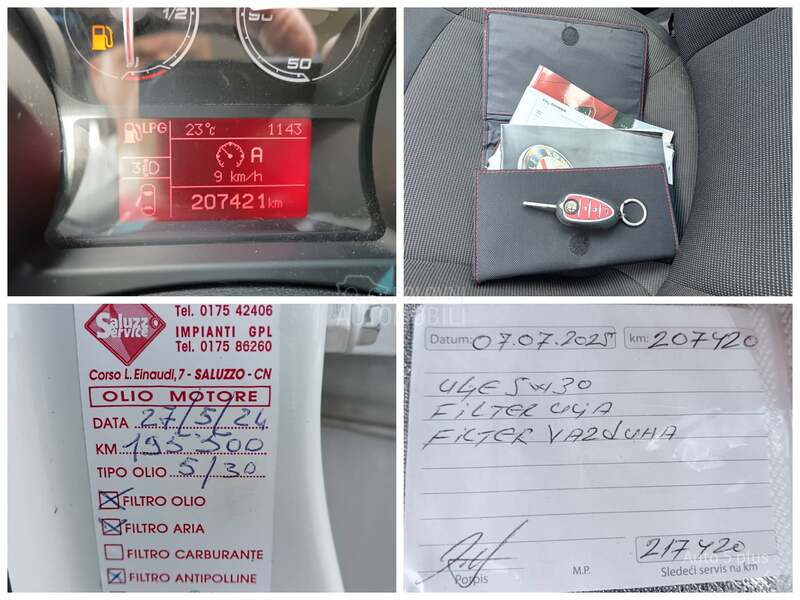 1/2
50
50
LPG
23°c
1143
3
D
A
9 km/h
207421 km
Saluzzo
Service
Tel. 0175 42406
IMPIANTI GPL
Tel. 0175 86260
Corso L. Einaudi, 7 - SALUZZO - CN
OLIO MOTORE
DATA 27/5/24
KM 195'500
TIPO OLIO 5/30
FILTRO OLIO
FILTRO ARIA
FILTRO CARBURANTE
FILTRO ANTIPOLLINE
Datum: 07.07.2025 km: 207420
ULJE 5W30
FILTER ULJA
FILTER VAZDUHA
217420
Potpis M.P. Sledeći servis na km
Auto 5 plus